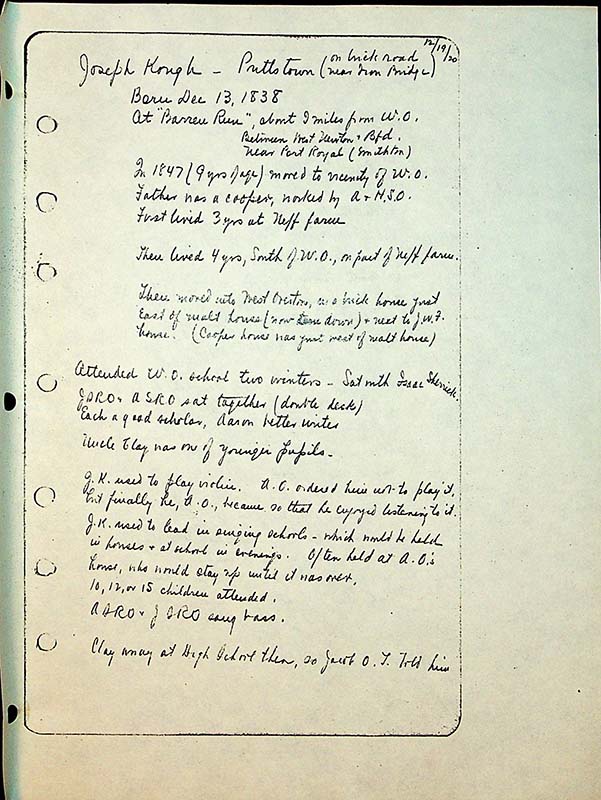 12/19/20
Joseph Hough - Pruthstown (on brick road
near Iron Bridge)
Born Dec 13, 1838
At "Barren Run", about 9 miles from W.O.
Between West Newton & Bfd.
Near Port Royal (Smithton)
In 1847 (9 yrs of age) moved to vicinity of W.O.
Father was a cooper, worked by A & H.S.O.
First lived 3 yrs at Neff farm
Then lived 4 yrs, South of W.O., on part of Neff farm.
Then moved into West Overton, in a brick house just
East of malt house (now torn down) & next to J.W.F.
house. (Cooper house was just west of malt house)
Attended W.O. school two winters - Sat with Isaac Sherrick.
JSRO & ASRO sat together (double desk)
Each a good scholar, Aaron better writer
Uncle Clay was one of younger pupils -
J.K. used to play violin. A.O. ordered him not to play it,
but finally he, A.O., became so that he enjoyed listening to it.
J.K. used to lead in singing schools - which would be held
in houses & at school in evenings. Often held at A.O.'s
house, who would stay up until it was over.
10, 12, or 15 children attended.
ASRO & JSRO sang bass.
Clay away at High School then, so Jacob O. T. told him